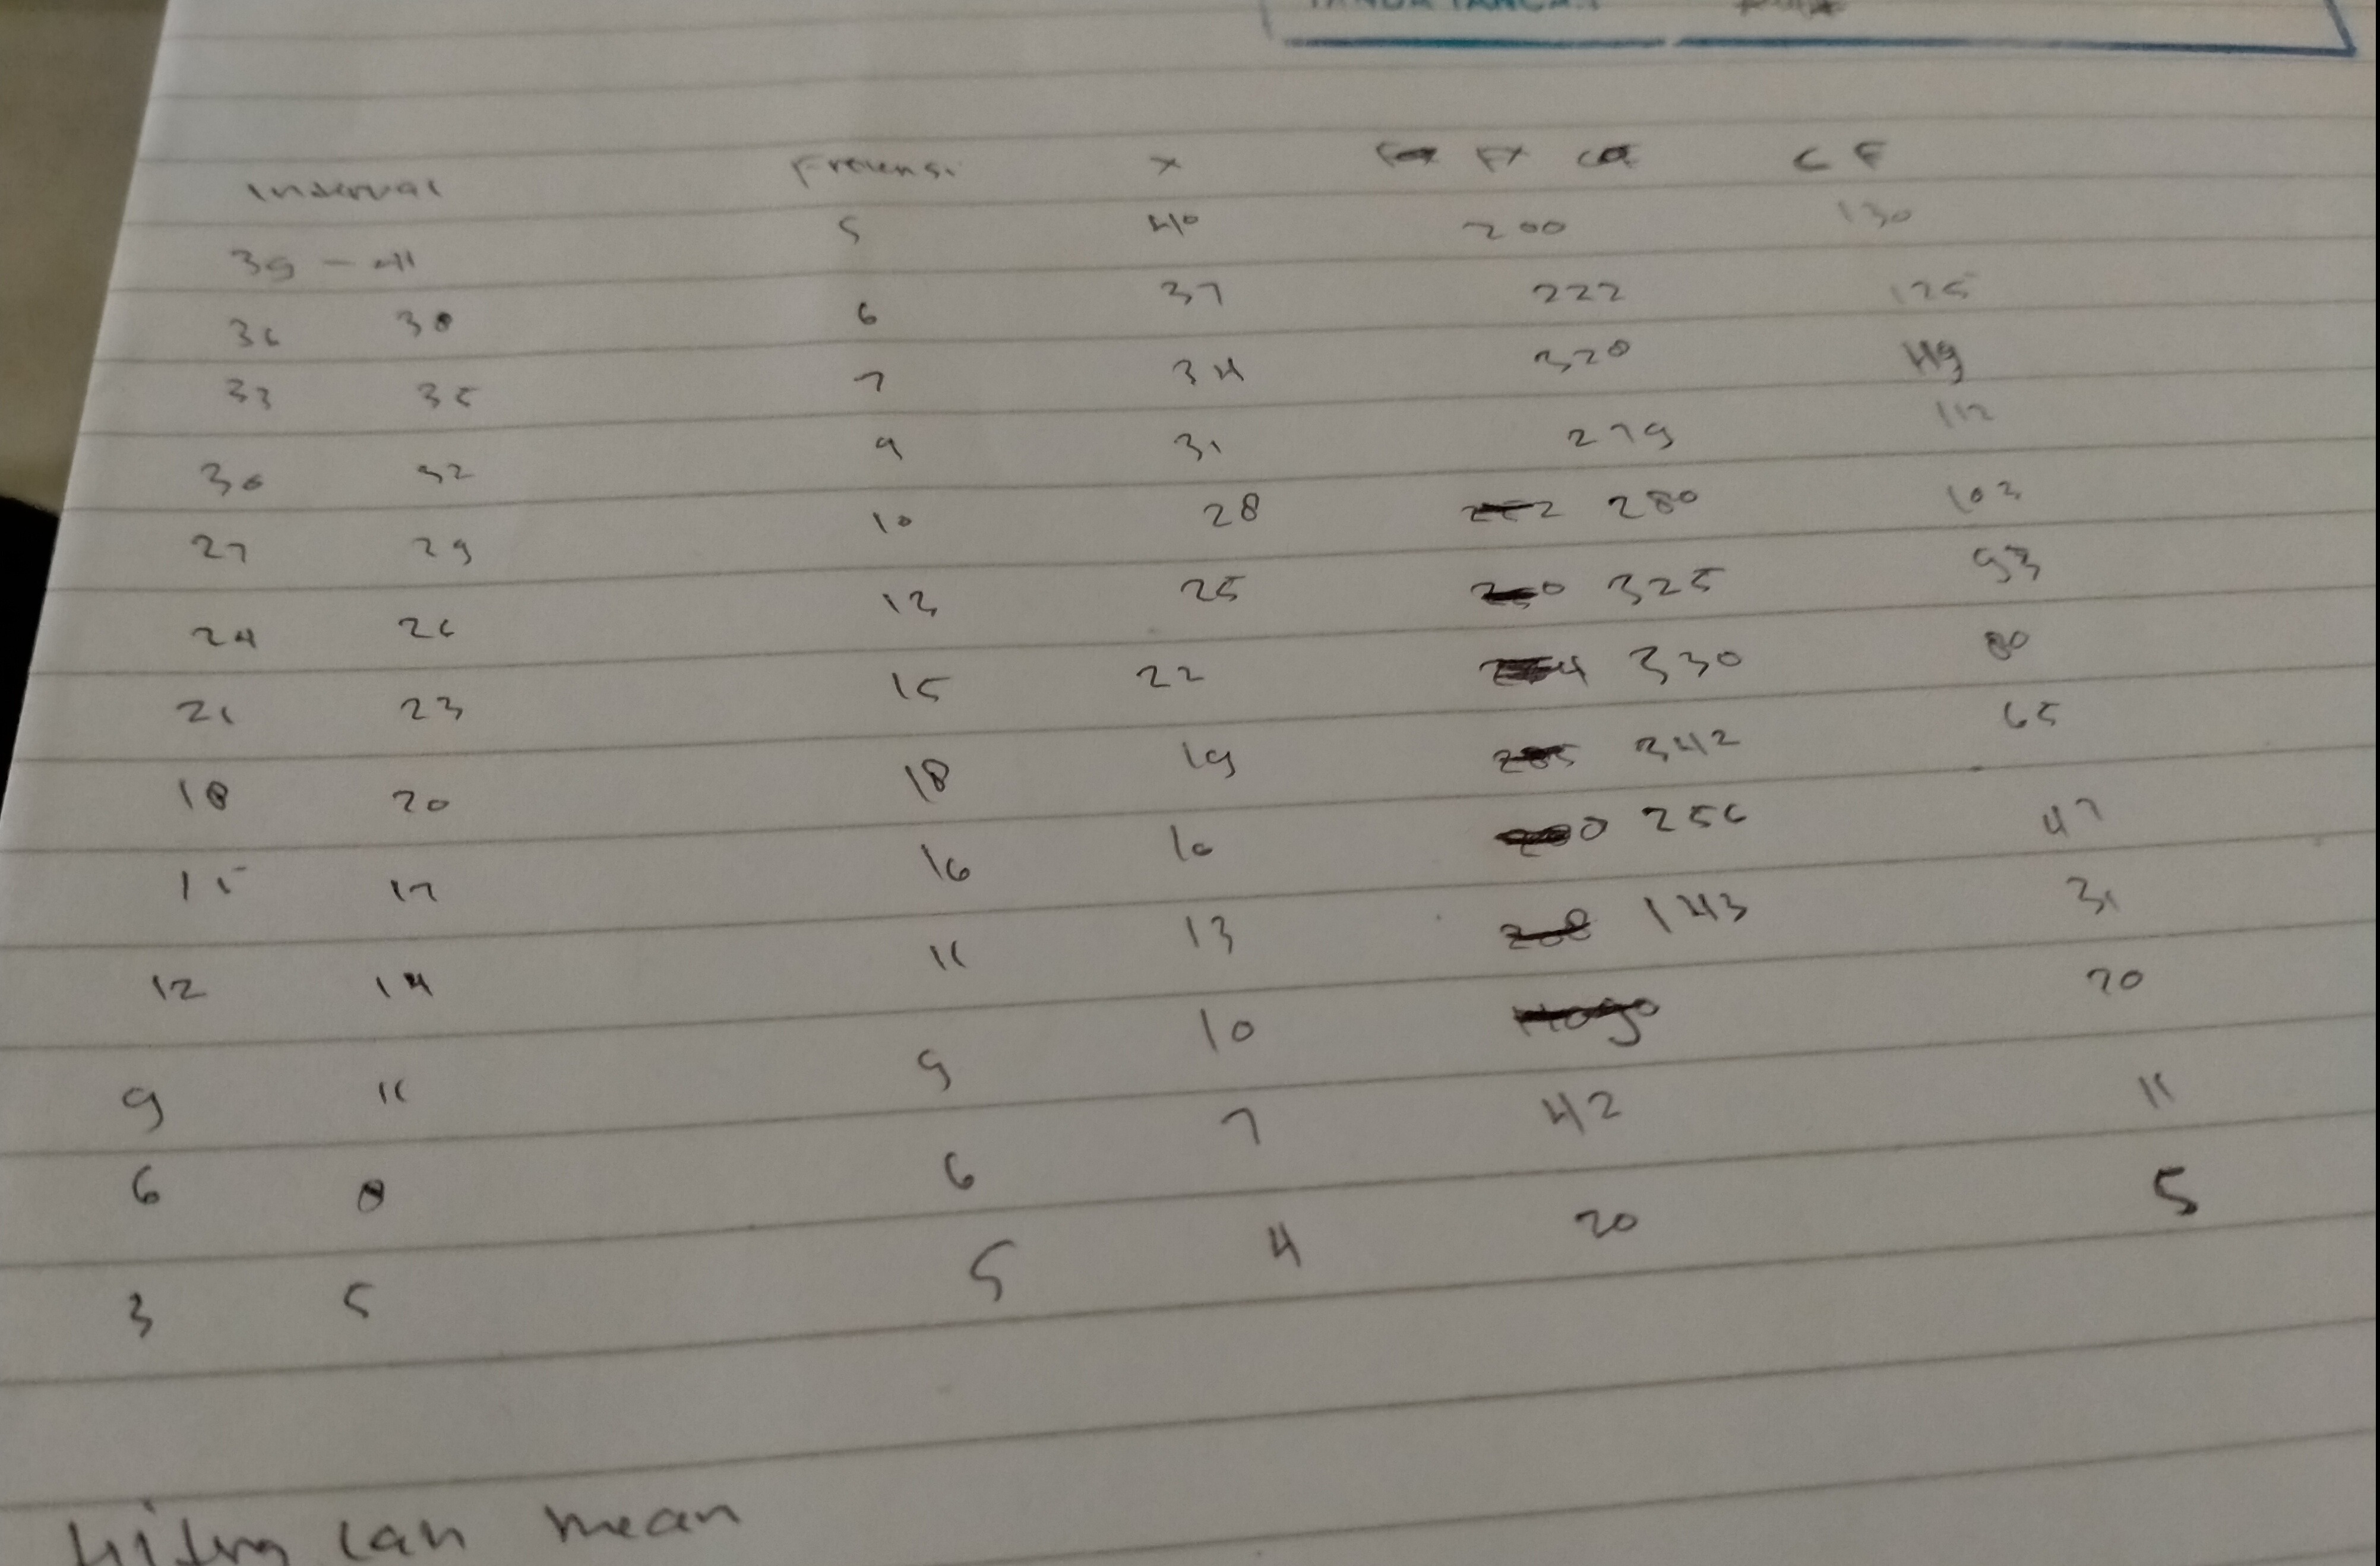 TANDA TANGAN
Interval Frekuensi X FX CF
39 - 41 5 40 200 130
36 38 6 37 222 125
33 35 7 34 320 119
30 32 9 31 279 112
27 29 10 28 280 103
24 26 13 25 325 93
21 23 15 22 330 80
18 20 18 19 342 65
15 17 16 16 256 47
12 14 11 13 143 31
9 11 9 10 90 20
6 8 6 7 42 11
3 5 5 4 20 5
hitung lah mean